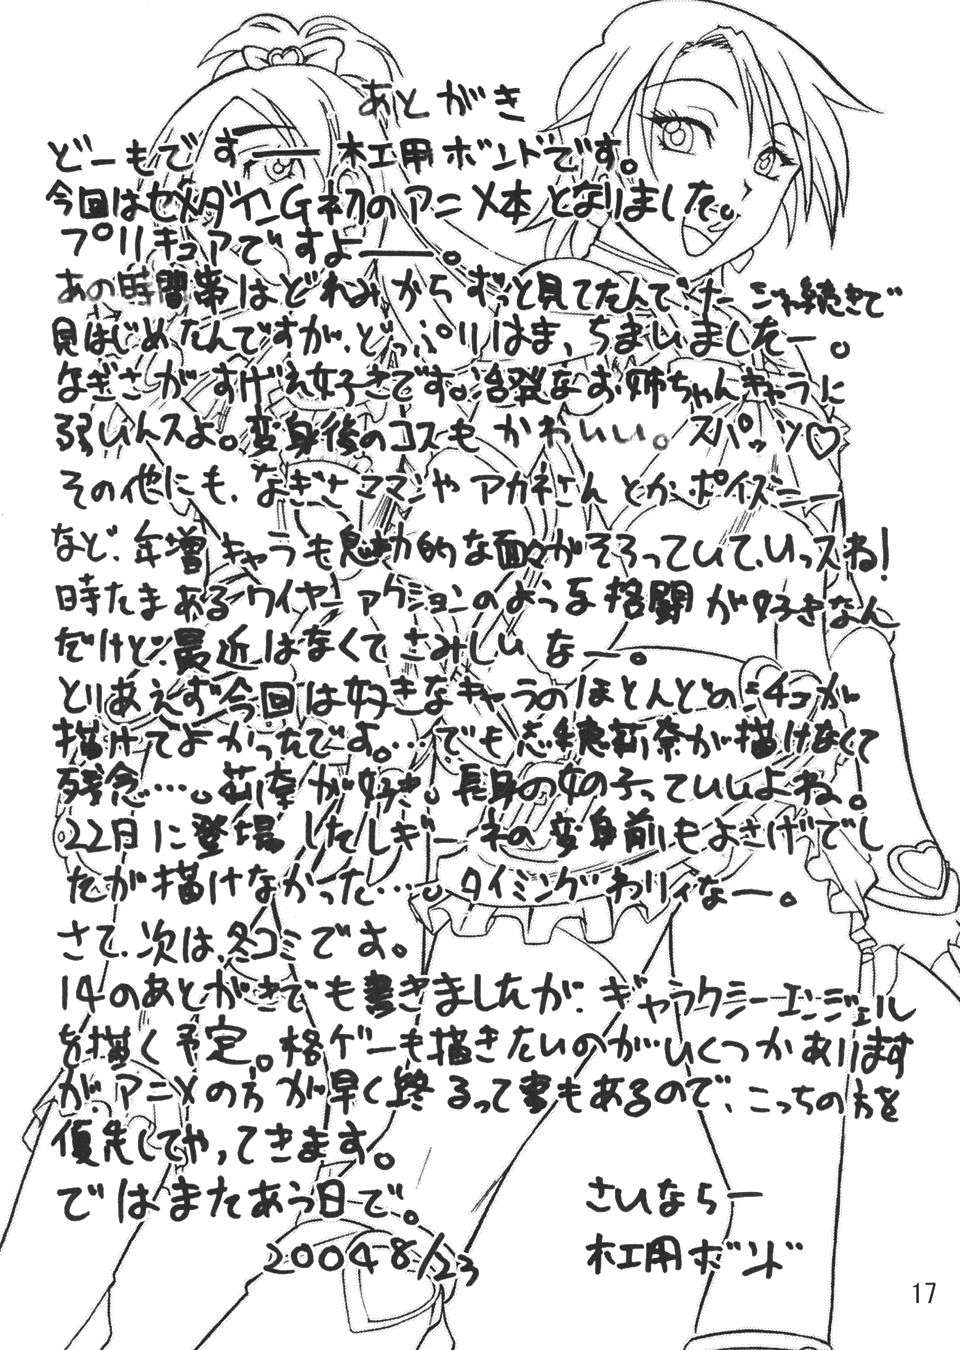 あとがき
どーもですー 木工用ボンドです。
今回はセメダインG初のアニメ本となりました。
プリキュアですよー。
あの時間帯はどれみからずっと見てたんで、ナージャ続きで
見はじめたんですが、どっぷりはま、ちまいましたー。
なぎさがすげえ好きです。活発なお姉ちゃんキャラに
弱いんスよ。変身後のコスもかわいい。スパッツ♡
その他にも、なぎさママンやアカネさんとかポイズニー
など、年増キャラも魅力的な面々がそろっていて、いっスね!
時たまあるワイヤーアクションのような格闘が好きなん
だけど、最近はなくてさみしいなー。
とりあえず今回は好きなキャラのほとんどのシチュが
描けてよかったです。…でも志穂莉奈が描けなくて
残念…。莉奈が好き。長身の女の子っていいよね。
22日に登場したレギーネの変身前もよさげでし
たが描けなかった…。タイミングわりィなー。
さて、次は、冬コミです。
14のあとがきでも書きましたが、ギャラクシーエンジェル
を描く予定。格ゲーも描きたいのが…いくつかあります
が、アニメの方が早く終るって事もあるので、こっちの方を
優先してやってきます。
ではまたあう日で。
さいならー
2004 8/23
木工用ボンド
17